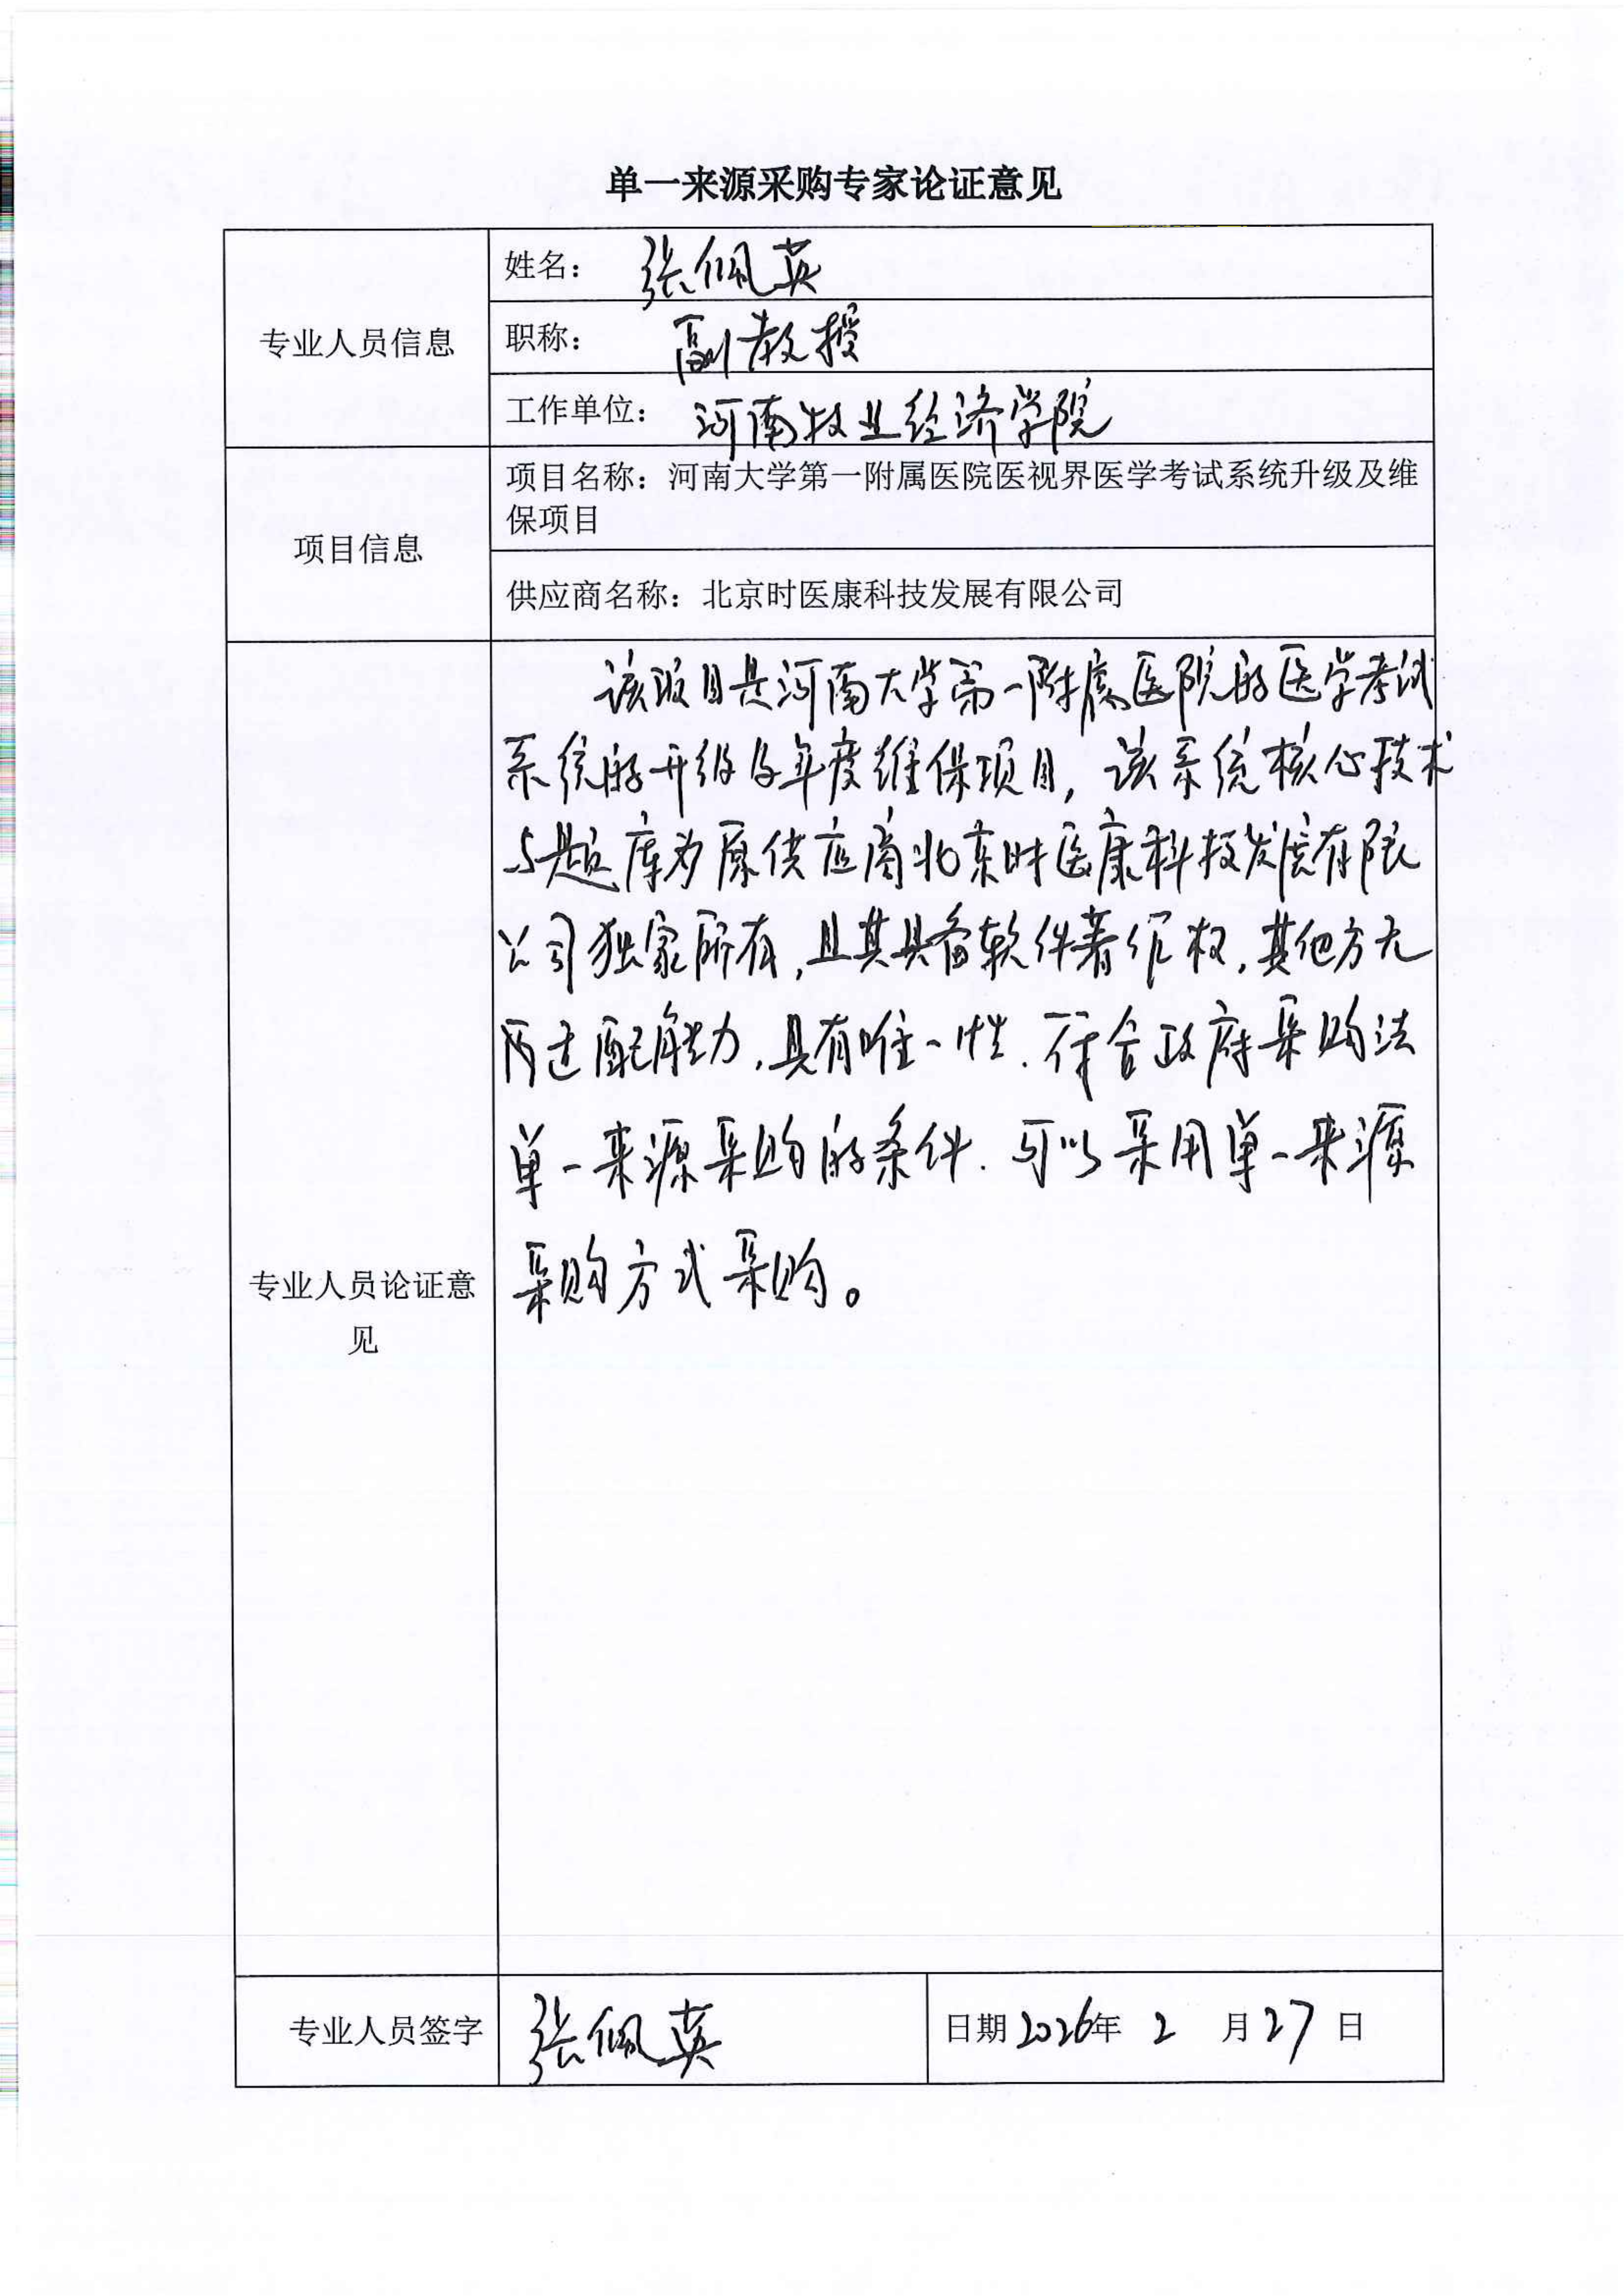 单一来源采购专家论证意见
专业人员信息
姓名： 张佩英
职称： 副教授
工作单位： 河南牧业经济学院
项目信息
项目名称：河南大学第一附属医院医视界医学考试系统升级及维
保项目
供应商名称：北京时医康科技发展有限公司
专业人员论证意
见
该项目是河南大学第一附属医院的医学考试
系统的升级及年度维保项目，该系统核心技术
与题库为原供应商北京时医康科技发展有限
公司独家所有，且其具备软件著作权，其他方无
两适配能力，具有唯一性．符合政府采购法
单一来源采购的条件．可以采用单一来源
采购方式采购。
专业人员签字
张佩英
日期2026年 2 月27日